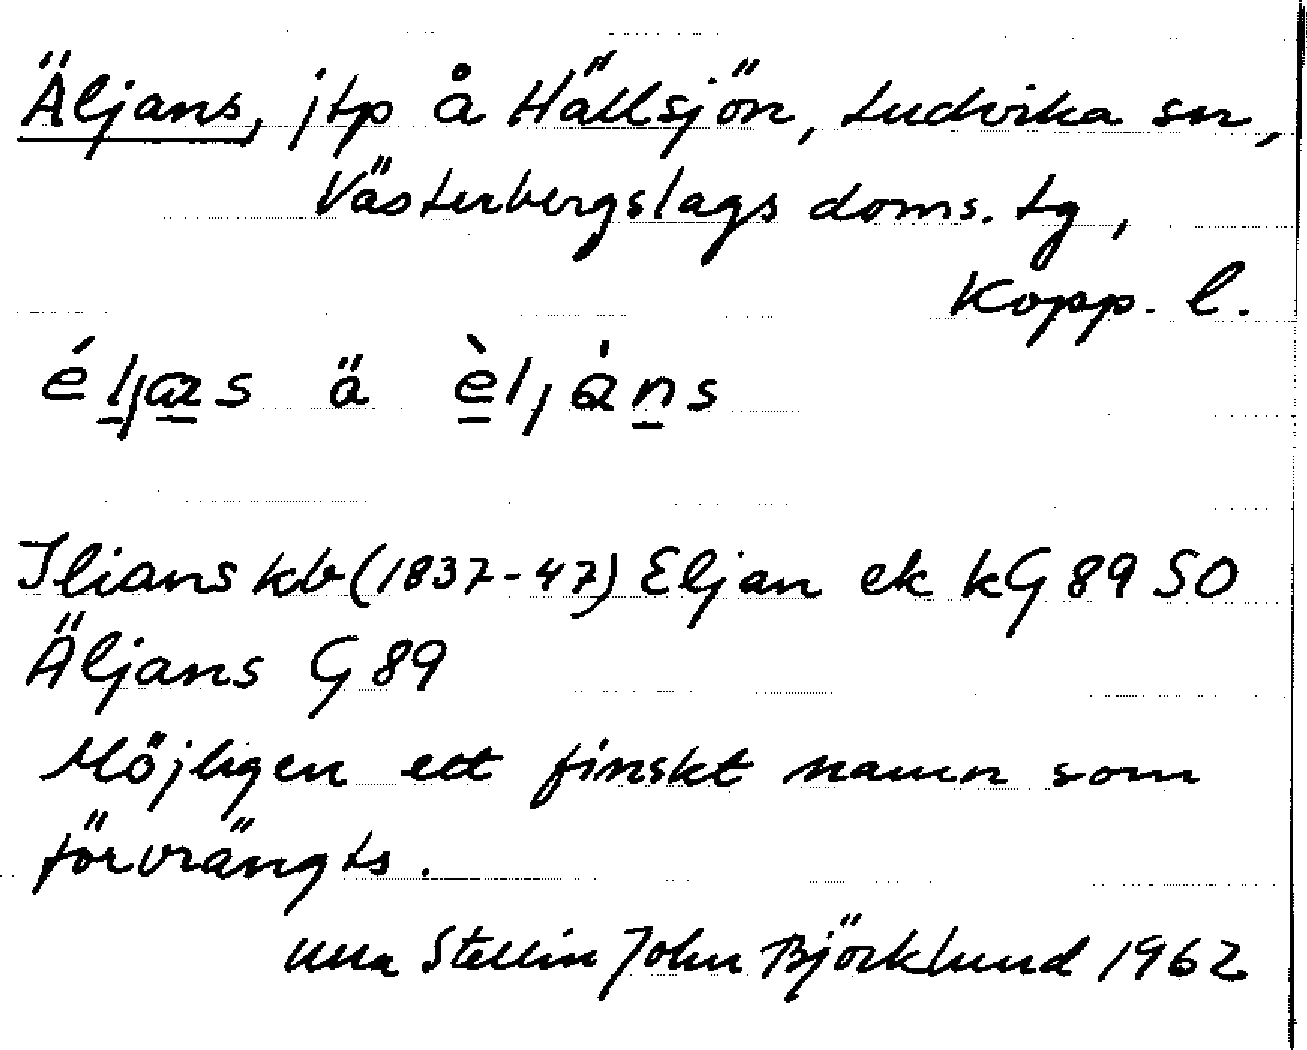 Äljans, jtp å Hällsjön, Ludvika sn,
Västerbergslags doms. tg,
Kopp. l.
éljas ä èljàns
Ilians kb (1837-47) Eljan ek kG 89 SO
Äljans G 89
Möjligen ett finskt namn som
förvrängts.
Ulla Stellin John Björklund 1962